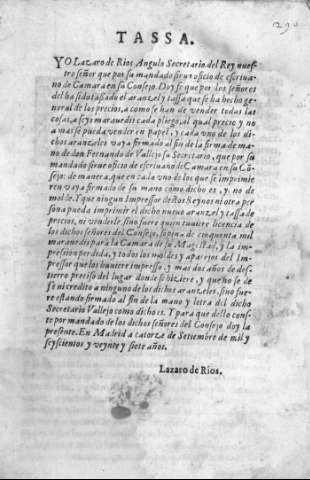 290
TASSA.
YO Lazaro de Rios Angulo Secretario del Rey nues-
tro señor que por su mandado siruo oficio de escriuano
de Camara en su Consejo. Doy fe que por los señores
del ha sido tassado el aranzel y tassa que se ha hecho general
de los precios, a como se han de vender todas las
cosas, a seys marauedis cada pliego, al qual precio y no
a mas se pueda vender en papel, y cada vno de los dichos
aranzeles vaya firmado al fin de la firma de mano
de don Fernando de Vallejo su Secretario, que por su
mandado sirue oficio de escriuano de Camara en su Consejo:
de manera, que en cada vno de los que se imprimieren
vaya firmado de su mano como dicho es, y no de
molde. Y que ningun Impressor destos Reynos ni otra persona
pueda imprimir el dicho nueuo aranzel y tassa de
precios, ni venderle, sino fuere quien tuuiere licencia de
los dichos señores del Consejo, so pena de cinquenta mil
marauedis para la Camara de su Magestad, y la impression
perdida, y todos los moldes y aparejos del Impressor
que los huuiere impresso, y mas dos años de destierro
preciso del lugar donde se hiziere, y que no se de
fe ni credito a ninguno de los dichos aranzeles, sino fuere
estando firmado al fin de la mano y letra del dicho
Secretario Vallejo como dicho es. Y para que dello conste
por mandado de los dichos señores del Consejo doy la
presente. En Madrid a catorze de Setiembre de mil y
seyscientos y veynte y siete años.
Lazaro de Rios.